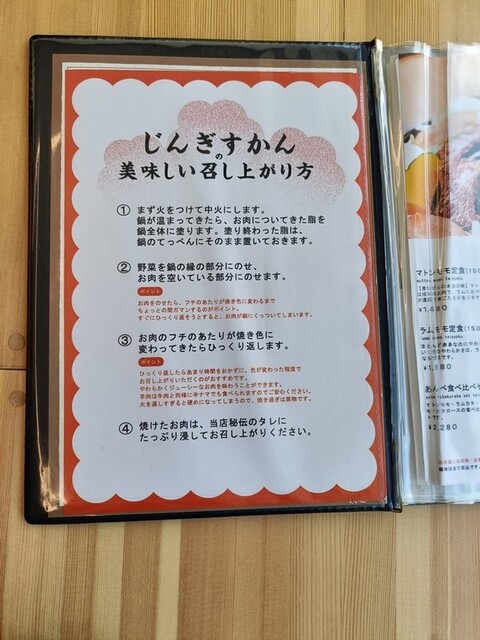 じんぎすかん
の
美味しい召し上がり方
① まず火をつけて中火にします。
鍋が温まってきたら、お肉についてきた脂を
鍋全体に塗ります。塗り終わった脂は、
鍋のてっぺんにそのまま置いておきます。
② 野菜を鍋の縁の部分にのせ、
お肉を空いている部分にのせます。
ポイント
お肉をのせたら、フチのあたりが焼き色に変わるまで
ちょっとの間ガマンするのがポイント。
すぐにひっくり返そうとすると、お肉が鍋にくっついてしまいます。
③ お肉のフチのあたりが焼き色に
変わってきたらひっくり返します。
ポイント
ひっくり返したらあまり時間をおかずに、色が変わった程度で
お召し上がりいただくのがおすすめです。
やわらかくジューシーなお肉を味わうことができます。
羊肉は牛肉と同様に半ナマでも食べられますのでご安心ください。
火を通しすぎると硬めになってしまうので、焼き過ぎは禁物です。
④ 焼けたお肉は、当店秘伝のタレに
たっぷり浸してお召し上がりください。
マトンモモ定食(150
¥1,480
ラムモモ定食(150
¥1,880
あんべ食べ比べセ
¥2,280